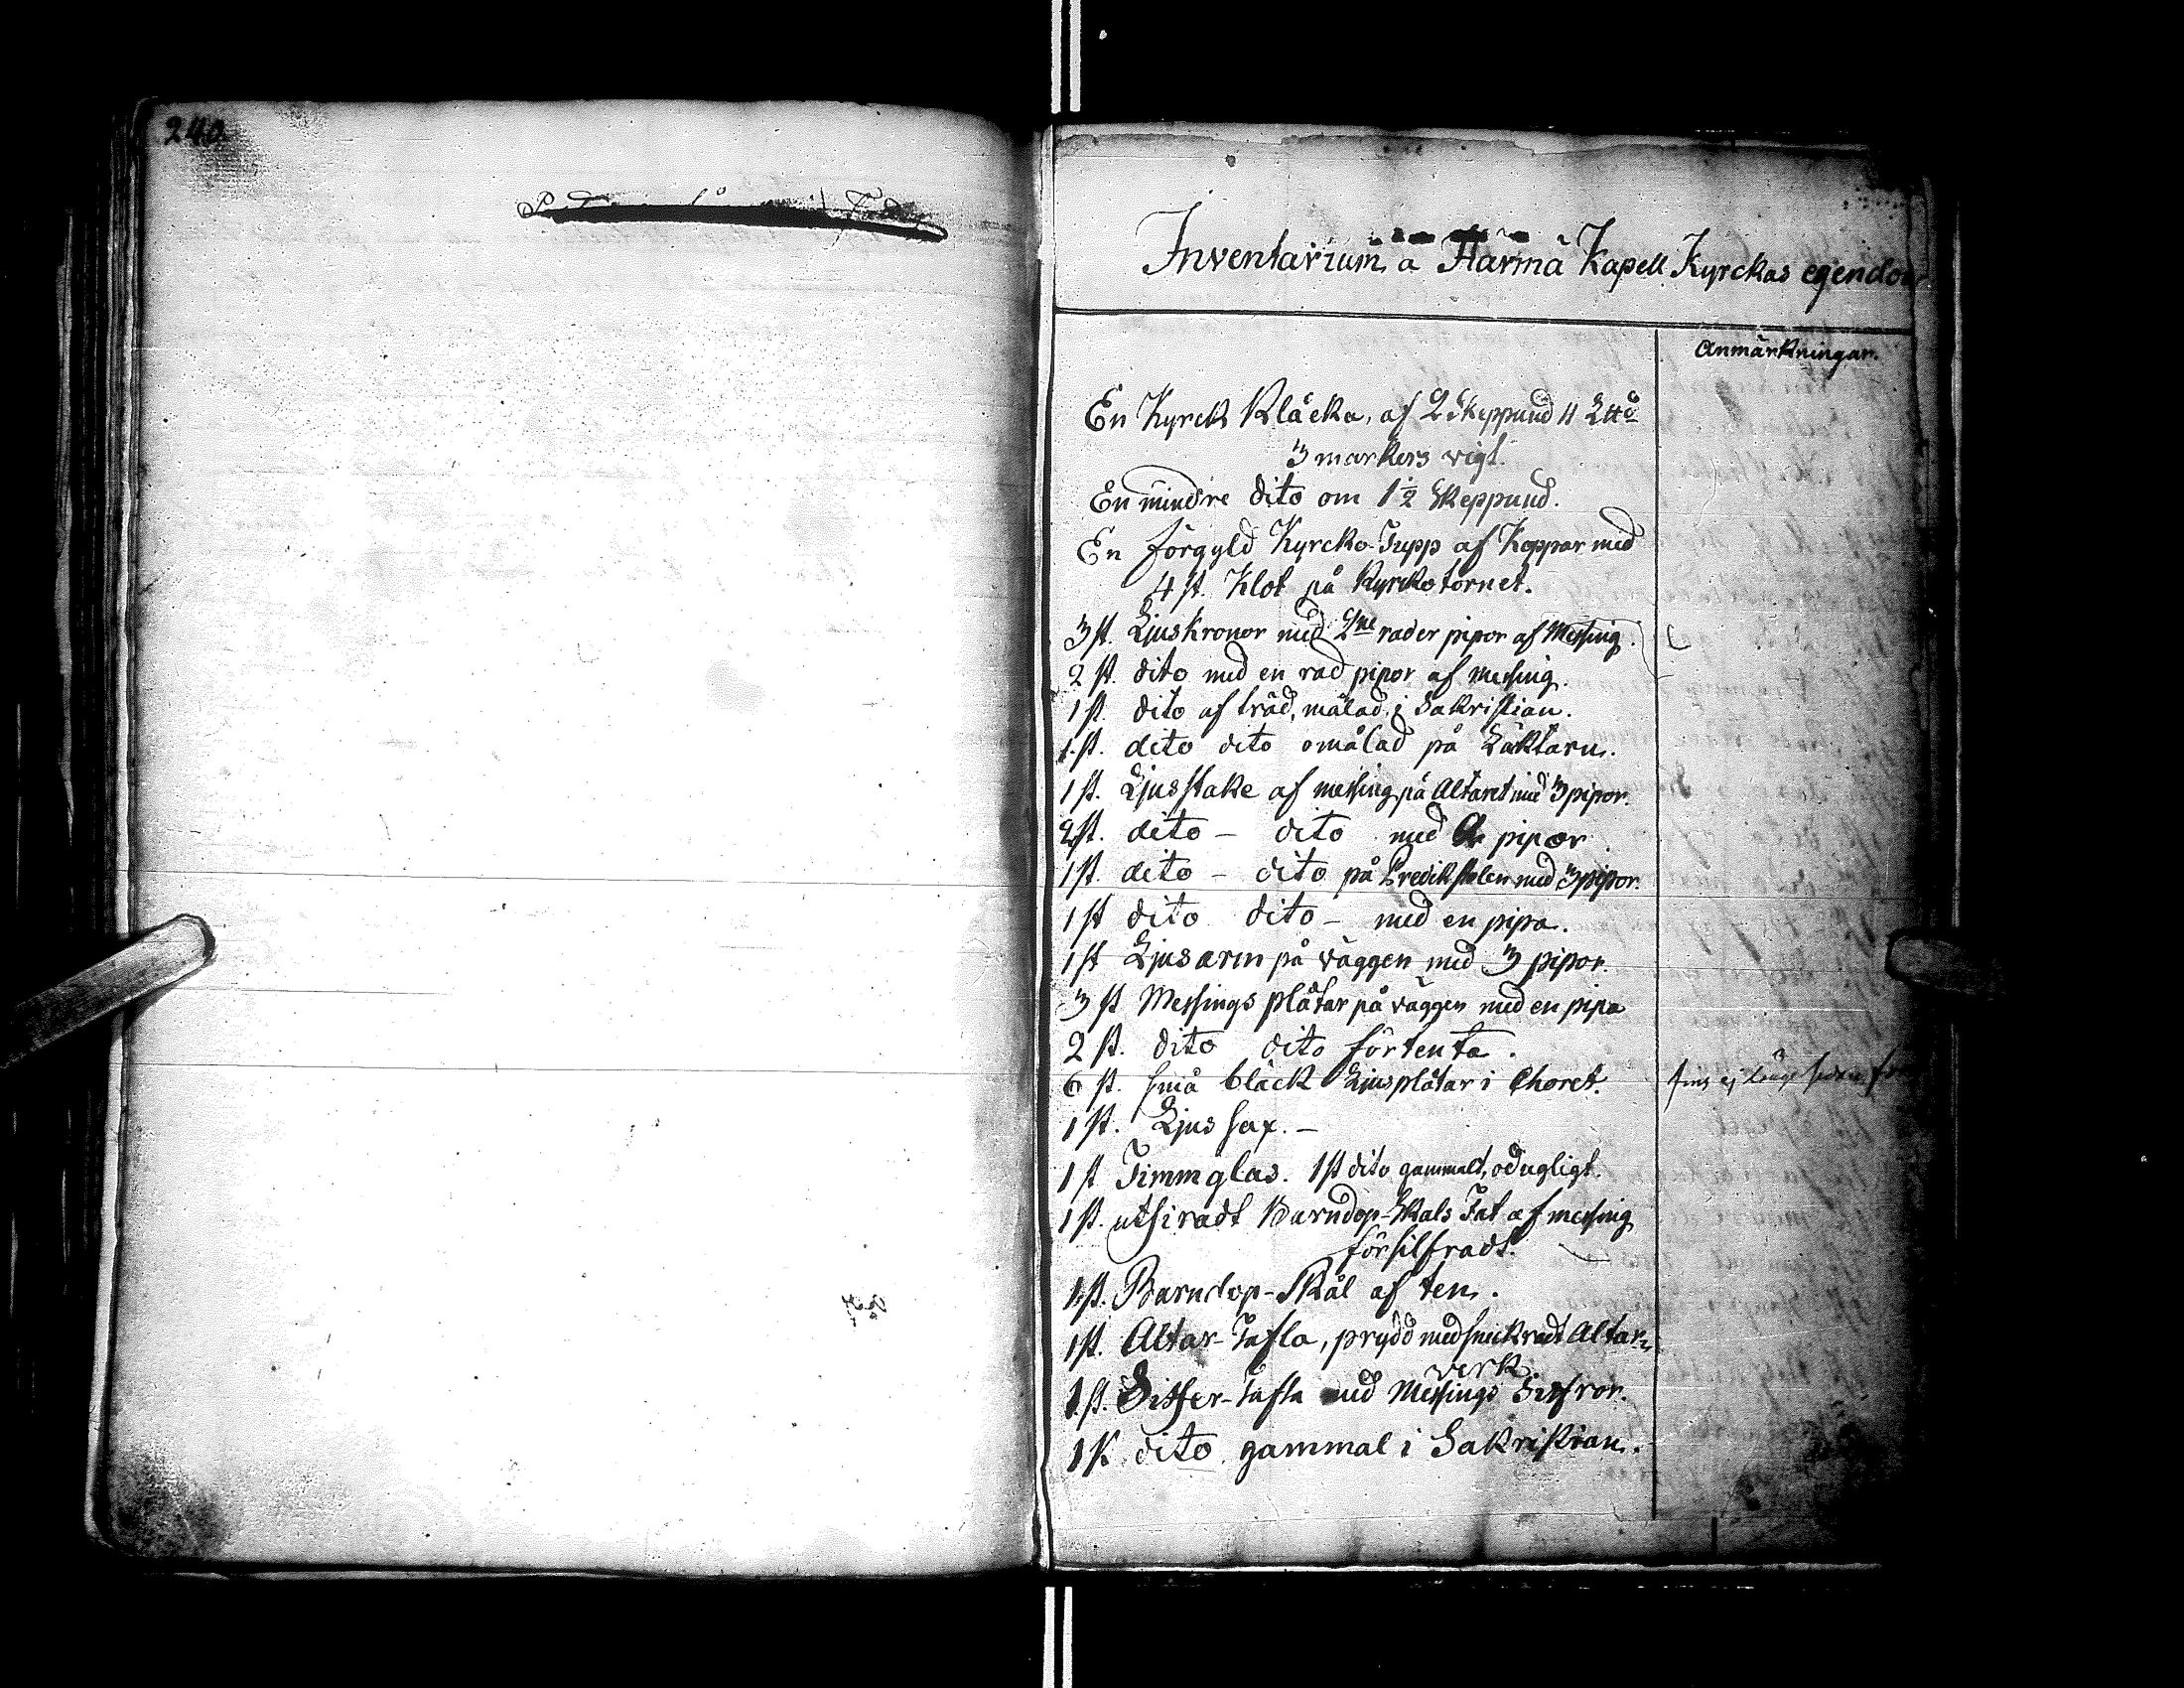 240.
Inventarium å Härmä Kapell Kyrckas egendom
Anmärkningar.
En Kyrck Kläcka, af 2 Skeppund 11 L℔
3 markers vigt.
En mindre dito om 1½ Skeppund.
En förgyld Kyrcko-Tupp af Koppar med
4 st. Klot på Kyrkotornet.
3 st. Ljuskronor med 2ne rader pipor af Messing.
2 st. dito med en rad pipor af messing.
1 st. dito af träd, målad, i Sakristian.
1 st. dito dito omålad på Läktarn.
1 st. Ljusstake af messing på Altaret med 3 pipor.
2 st. dito – dito med 2 pipor.
1 st. dito – dito på Predikstolen med 3 pipor.
1 st dito dito – med en pipa.
1 st Ljusarm på väggen med 3 pipor.
3 st Messings plåtar på väggen med en pipa
2 st. dito dito förtenta.
6 st. små bläck Ljusplåtar i Choret. fins ej länge sedan
1 st. Ljus sax. –
1 st Timmglas. 1 st dito gammalt, odugligt.
1 st. utsiradt Barndop-Skals Fat af messing
försilfradt.
1 st. Barndop-Skål af ten.
1 st. Altar-Tafla, prydd med snickradt Altar-
verk.
1 st. Siffer-Tafla med Messings Siffror.
1 st dito gammal i Sakristian.